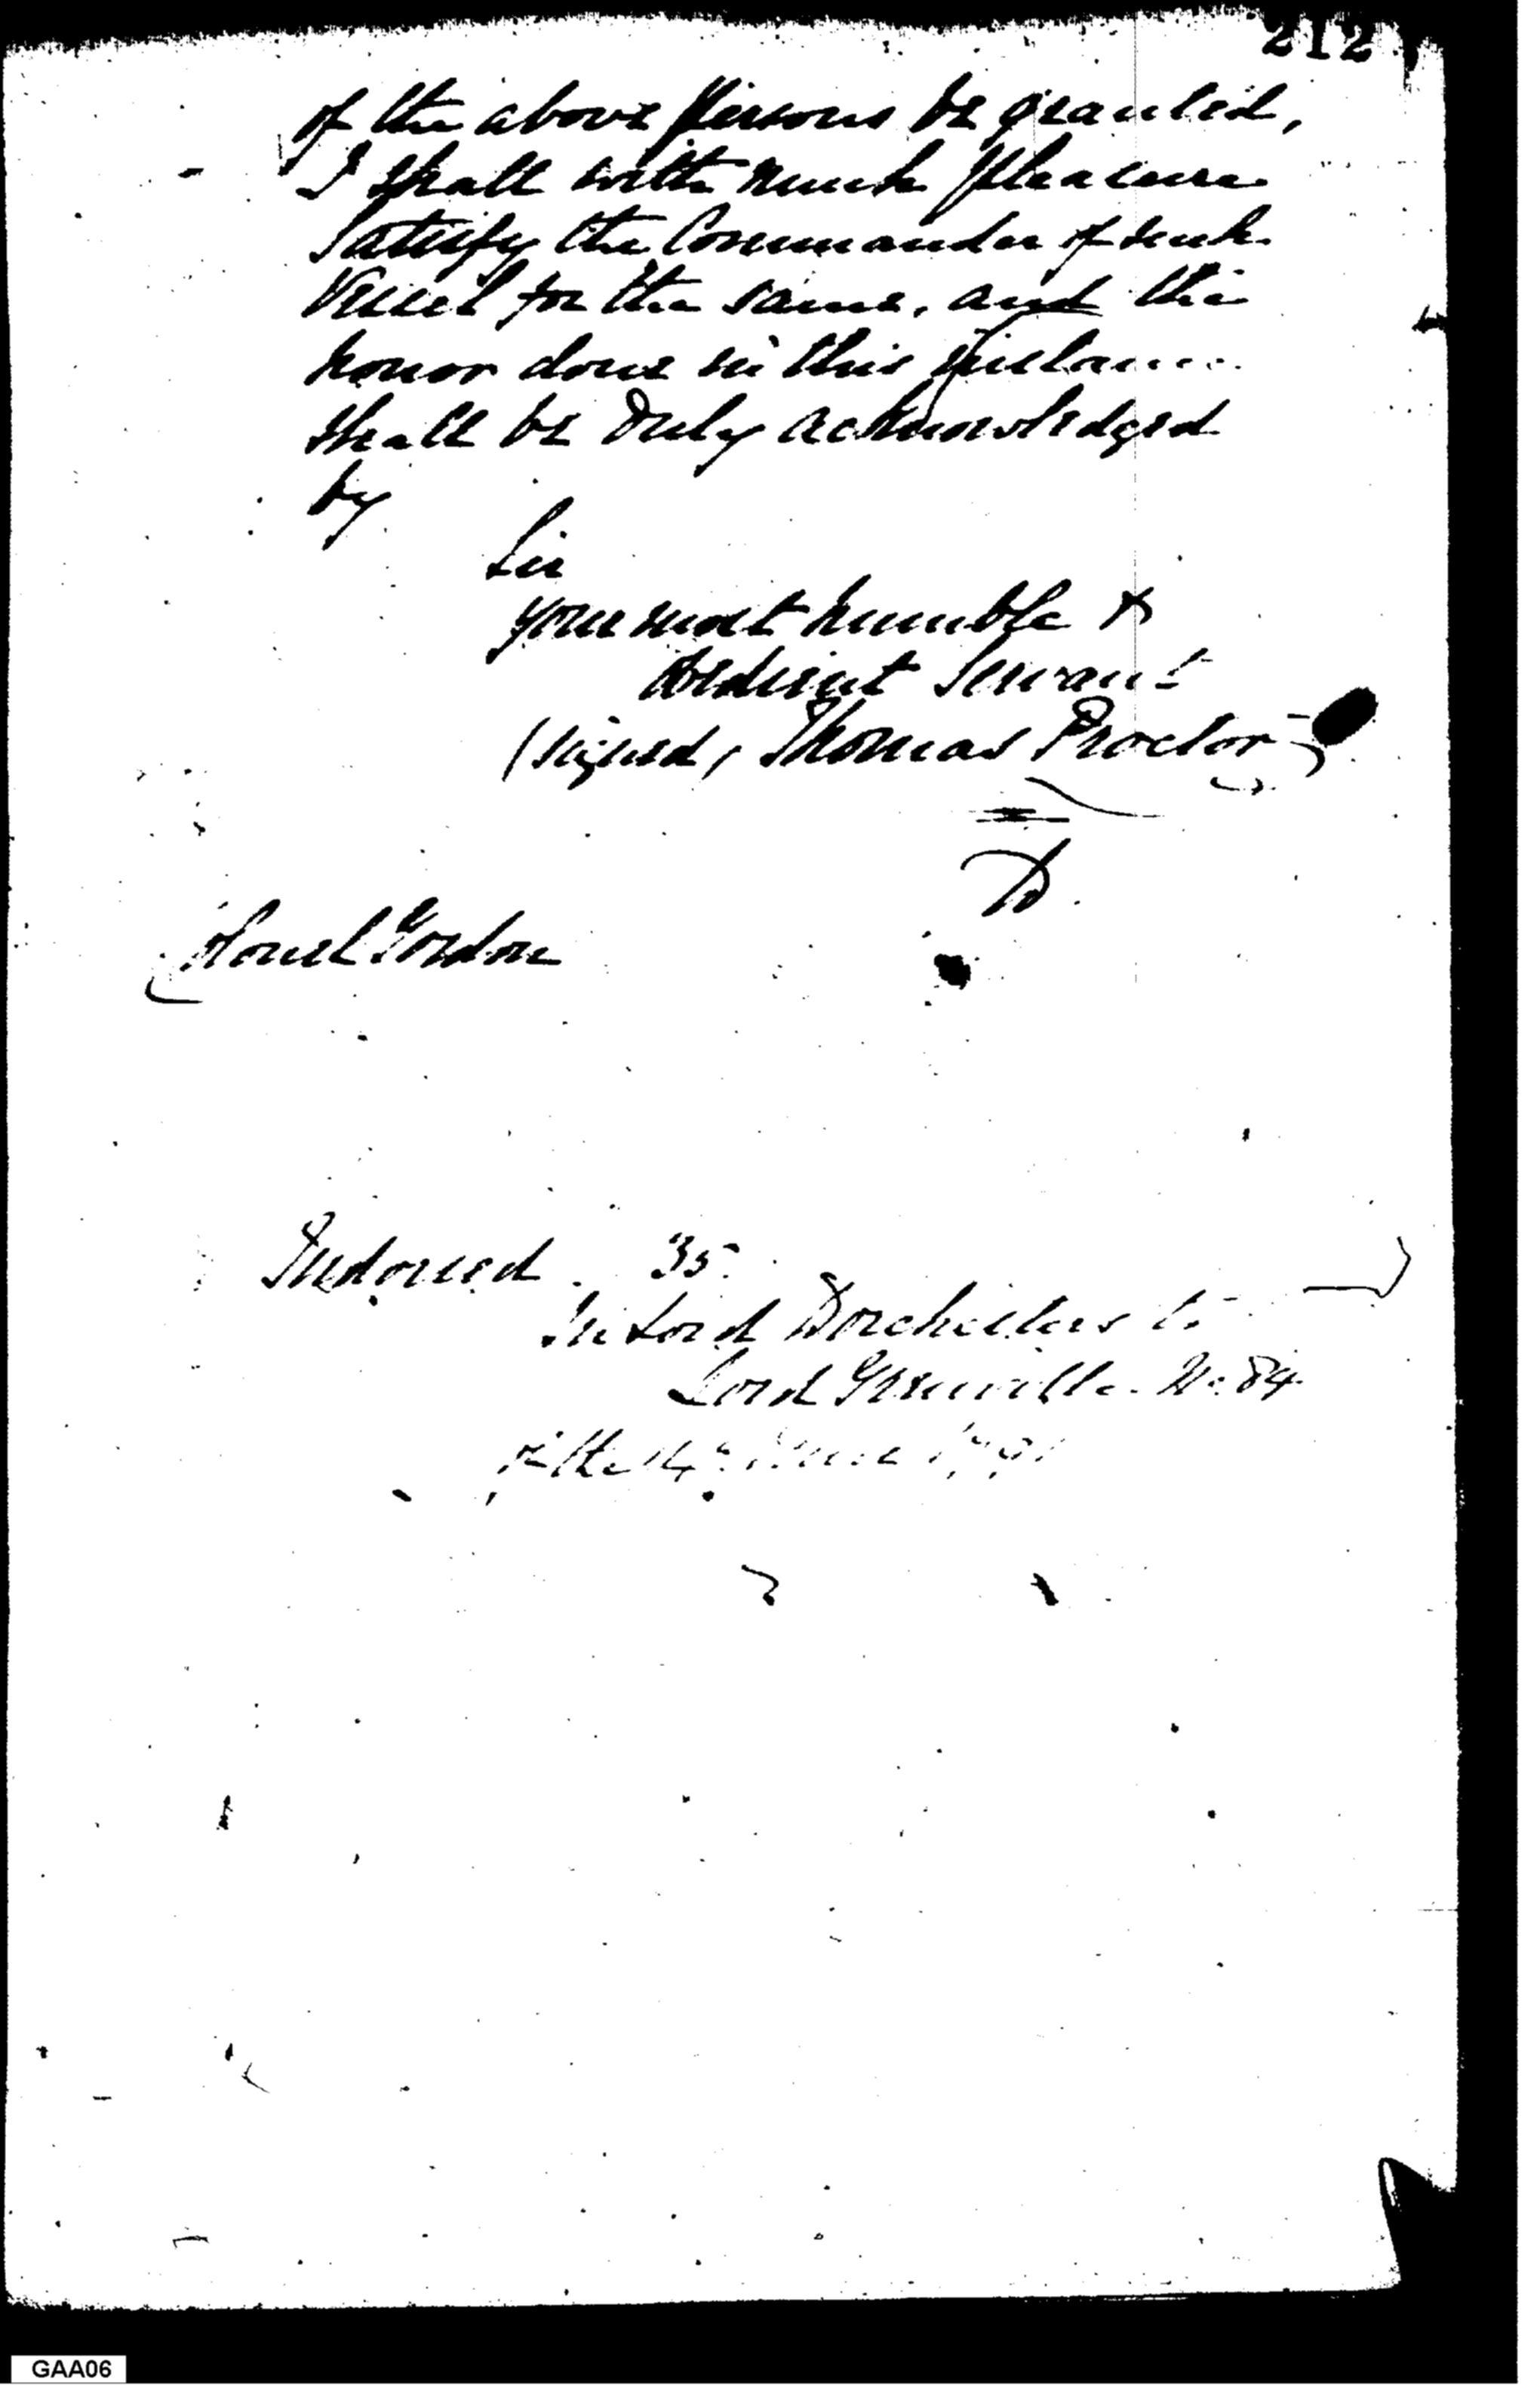 212
of the above persons be granted,
I shall with much pleasure
Satisfy the Commander of such
Vessel for the same, and the
honor done in this instance
shall be duly acknowledged
by
Sir
your most humble &
obedient Servant
(signed, Thomas Proctor
D.
Colonel Gordon
Indorsed. 35.
In Lord Dorchesters to
Lord Grenville. No: 84.
of the 14th June 1791
GAA06